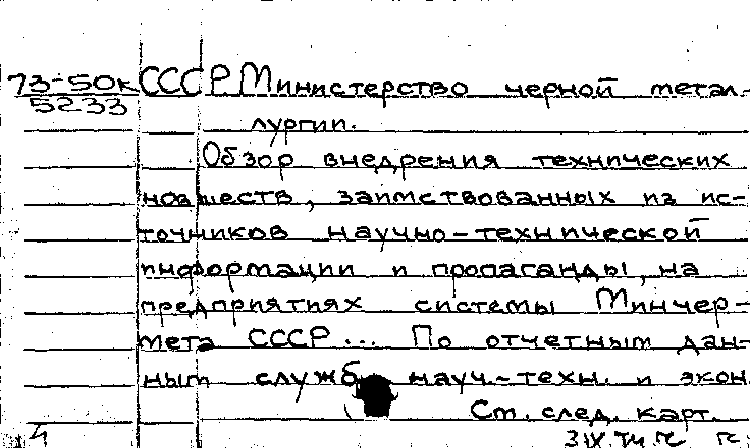 73-50к СССР. Министерство черной метал-
5233
лургии.
Обзор внедрения технических
новшеств, заимствованных из ис-
точников научно-технической
информации и пропаганды, на
предприятиях системы Минчер-
мета СССР... По отчетным дан-
ным служб науч.-техн. и экон
См. след. карт.
4